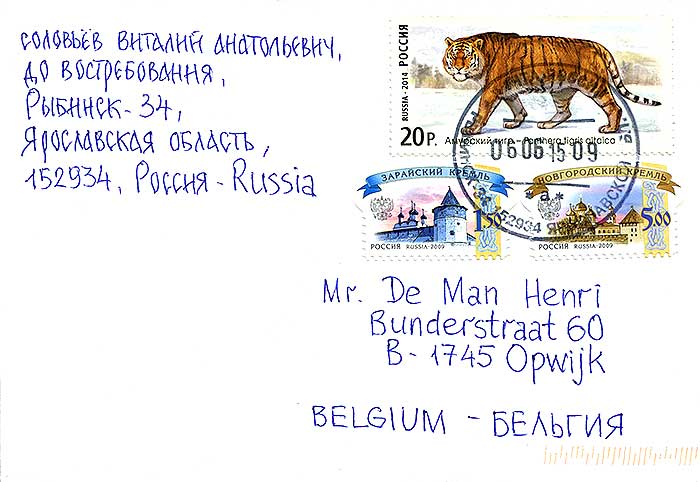 Соловьёв Виталий Анатольевич,
до востребования,
Рыбинск-34,
Ярославская область,
152934, Россия-Russia
РОССИЯ
RUSSIA・2014
20 Р.
Амурский тигр – Panthera tigris altaica
06 06 15 09
152934 ЯРОСЛАВСКОЙ
ЗАРАЙСКИЙ КРЕМЛЬ
1,50
РОССИЯ RUSSIA·2009
НОВГОРОДСКИЙ КРЕМЛЬ
5,00
РОССИЯ RUSSIA·2009
Mr. De Man Henri
Bunderstraat 60
B-1745 Opwijk
BELGIUM - БЕЛЬГИЯ